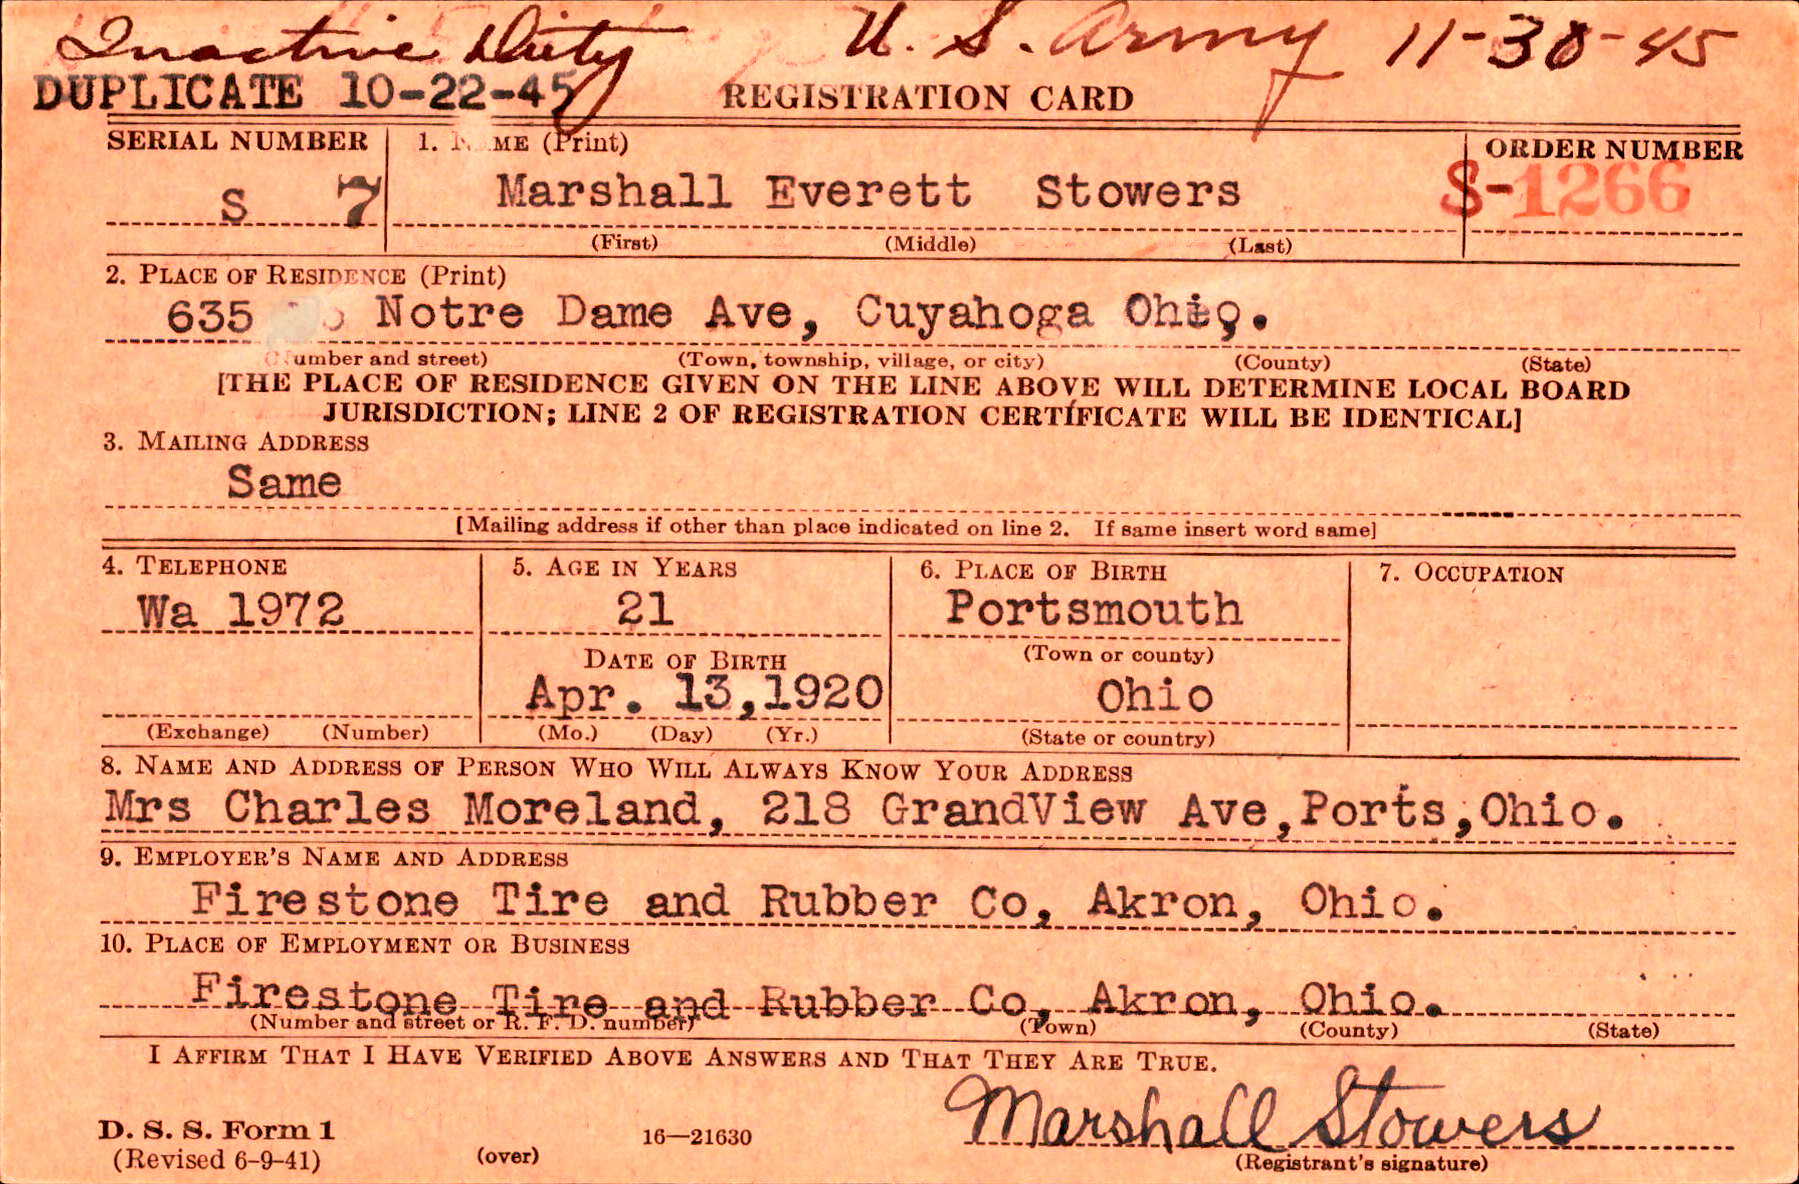 Inactive Duty U. S. Army 11-30-45
DUPLICATE 10-22-45 REGISTRATION CARD
SERIAL NUMBER 1. N ME (Print) ORDER NUMBER
S 7 Marshall Everett Stowers S-1266
(First) (Middle) (Last)
2. PLACE OF RESIDENCE (Print)
635 Notre Dame Ave, Cuyahoga Ohio.
umber and street) (Town, township, village, or city) (County) (State)
[THE PLACE OF RESIDENCE GIVEN ON THE LINE ABOVE WILL DETERMINE LOCAL BOARD
JURISDICTION; LINE 2 OF REGISTRATION CERTIFICATE WILL BE IDENTICAL]
3. MAILING ADDRESS
Same
[Mailing address if other than place indicated on line 2. If same insert word same]
4. TELEPHONE 5. AGE IN YEARS 6. PLACE OF BIRTH 7. OCCUPATION
Wa 1972 21 Portsmouth
DATE OF BIRTH (Town or county)
Apr. 13,1920 Ohio
(Exchange) (Number) (Mo.) (Day) (Yr.) (State or country)
8. NAME AND ADDRESS OF PERSON WHO WILL ALWAYS KNOW YOUR ADDRESS
Mrs Charles Moreland, 218 GrandView Ave,Ports,Ohio.
9. EMPLOYER'S NAME AND ADDRESS
Firestone Tire and Rubber Co, Akron, Ohio.
10. PLACE OF EMPLOYMENT OR BUSINESS
Firestone Tire and Rubber Co, Akron, Ohio.
(Number and street or R. F. D. number) (Town) (County) (State)
I AFFIRM THAT I HAVE VERIFIED ABOVE ANSWERS AND THAT THEY ARE TRUE.
Marshall Stowers
D. S. S. Form 1 16—21630
(Revised 6-9-41) (over) (Registrant's signature)